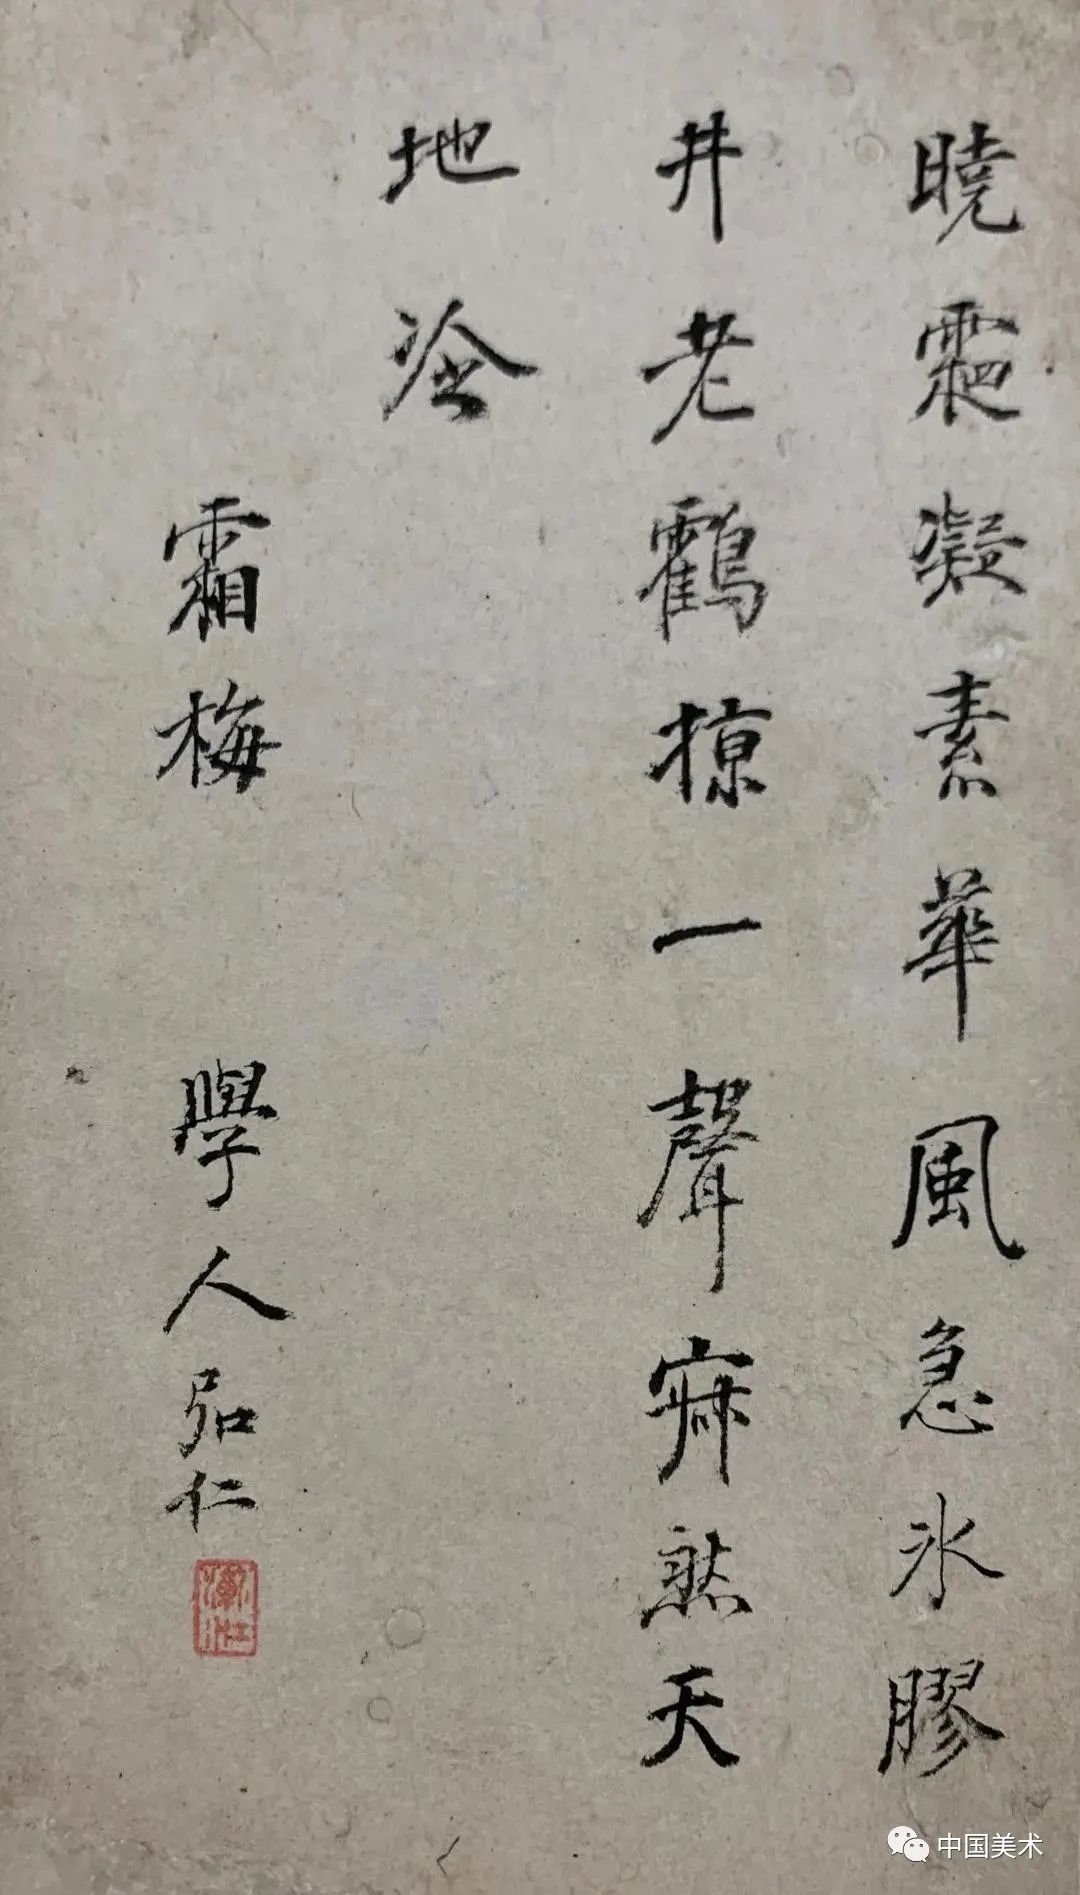 曉凝素華風急氷膠
井老鸖掠一聲寂然天
地冷
霜梅 學人弘仁
漸江
中国美术